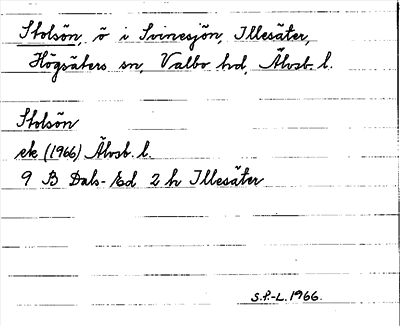 Stolsön, ö i Svinesjön, Illesäter,
Högsäters sn, Valbo hd, Älvsb. l.
Stolsön
ek (1966) Älvsb. l.
9 B Dals-Ed 2 h Illesäter
S.P.-L. 1966.